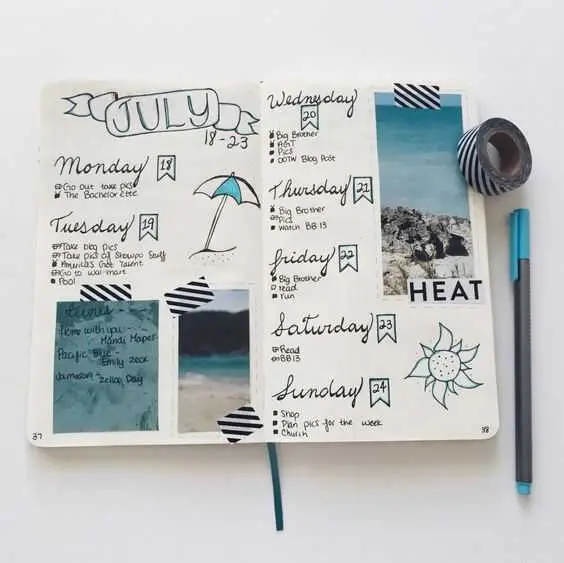 JULY
18-23
Monday 18
Go out take pics
The Bachelorette
Tuesday 19
Take blog pics
Take pics of Showpo Stuff
America's Got Talent
Go to Wal-mart
Pool
Home with you -
Mandi Mapes
Pacific Blue -
Emily Zeck
Zella Day
37
Wednesday
20
Big Brother
AGT
Pics
OOTW Blog Post
Thursday 21
Big Brother
Pics
Watch BB:13
Friday 22
Big Brother
read
run
Saturday 23
Read
BB13
Sunday 24
Shop
Plan pics for the week
Church
HEAT
38